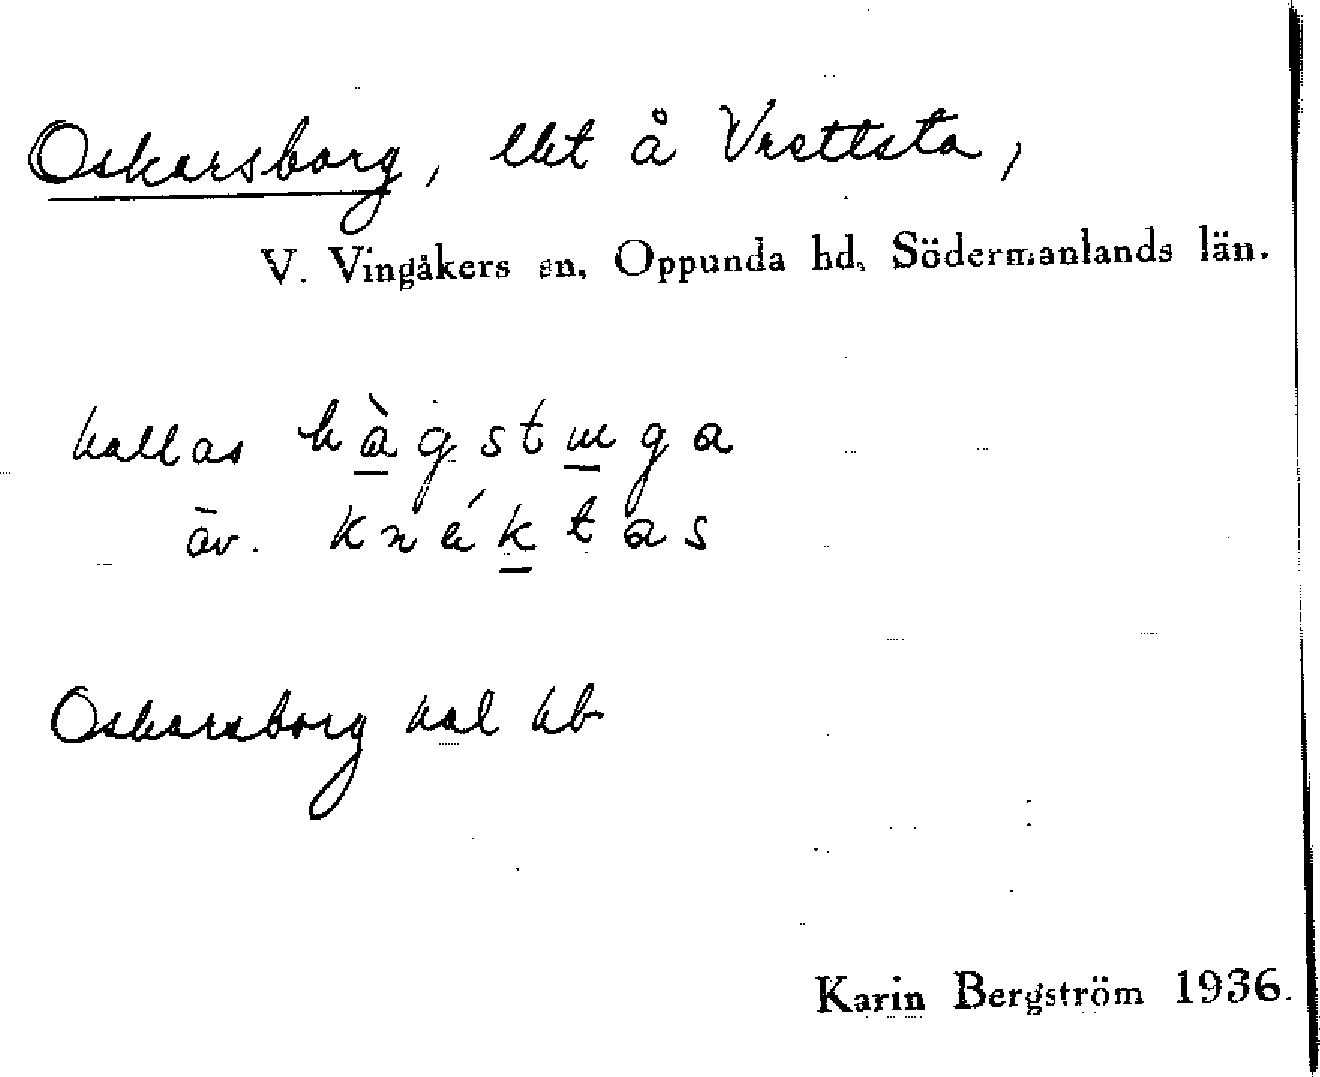 Oskarsborg, lht å Vrettsta,
V. Vingåkers sn, Oppunda hd, Södermanlands län.
kallas
äv.
Oskarsborg kal kb
Karin Bergström 1936.